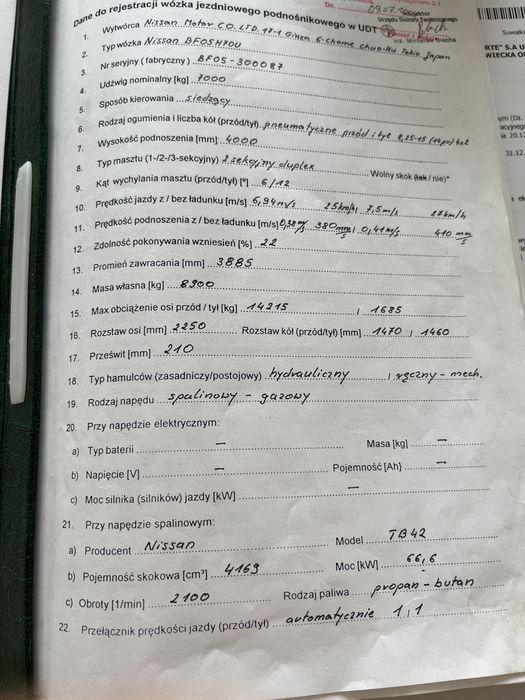 Dn. 09.07.
Urzędu Dozoru Technicznego
Dane do rejestracji wózka jezdniowego podnośnikowego w UDT
1. Wytwórca Nissan Motor CO. LTD. 17-1 Ginza 6-chome chuo-Ku Tokio Japan
2. Typ wózka Nissan BF05H70U
3. Nr seryjny (fabryczny) BF05-300087
4. Udźwig nominalny [kg] 7000
5. Sposób kierowania siedzący
6. Rodzaj ogumienia i liczba kół (przód/tył) pneumatyczne przód i tył 8,25-15 (14pr) 4x2
7. Wysokość podnoszenia [mm] 4000
8. Typ masztu (1-/2-/3-sekcyjny) 2 sekcyjny duplex Wolny skok (tak / nie)*
9. Kąt wychylania masztu (przód/tył) [°] 6/12
10. Prędkość jazdy z / bez ładunku [m/s] 6,94 m/s 25 km/h / 7,5 m/s 27 km/h
11. Prędkość podnoszenia z / bez ładunku [m/s] 0,38 m/s 380 mm/s / 0,41 m/s 410 mm/s
12. Zdolność pokonywania wzniesień [%] 22
13. Promień zawracania [mm] 3885
14. Masa własna [kg] 8900
15. Max obciążenie osi przód / tył [kg] 14215 / 1685
16. Rozstaw osi [mm] 2250 Rozstaw kół (przód/tył) [mm] 1470 / 1460
17. Prześwit [mm] 210
18. Typ hamulców (zasadniczy/postojowy) hydrauliczny / ręczny - mech.
19. Rodzaj napędu spalinowy - gazowy
20. Przy napędzie elektrycznym:
a) Typ baterii — Masa [kg] —
b) Napięcie [V] — Pojemność [Ah} —
c) Moc silnika (silników) jazdy [kW] —
21. Przy napędzie spalinowym:
a) Producent Nissan Model TB42
b) Pojemność skokowa [cm³] 4169 Moc [kW] 66,6
c) Obroty [1/min] 2100 Rodzaj paliwa propan - butan
22. Przełącznik prędkości jazdy (przód/tył) automatycznie 1 / 1
Suwałki
RTE" S.A U
WIECKA OF
ym (Dz.
20.12
31.12.